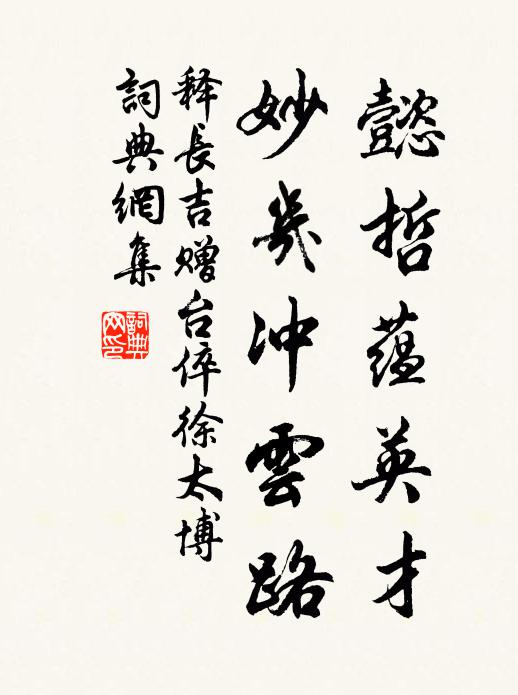 懿哲蘊英才
妙歲冲雲路
释長吉赠台倅徐太博
詞典網集
詞典
网印